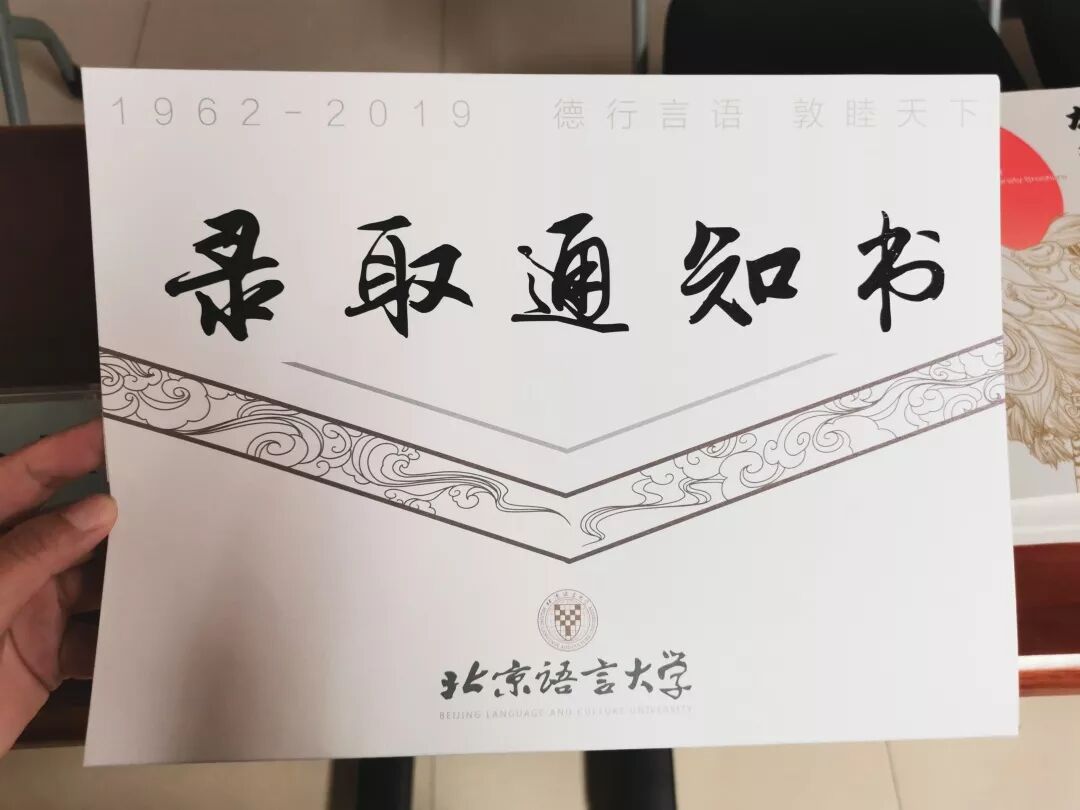 1962-2019 德行言语 敦睦天下
录取通知书
北京语言大学
BEIJING LANGUAGE AND CULTURE UNIVERSITY